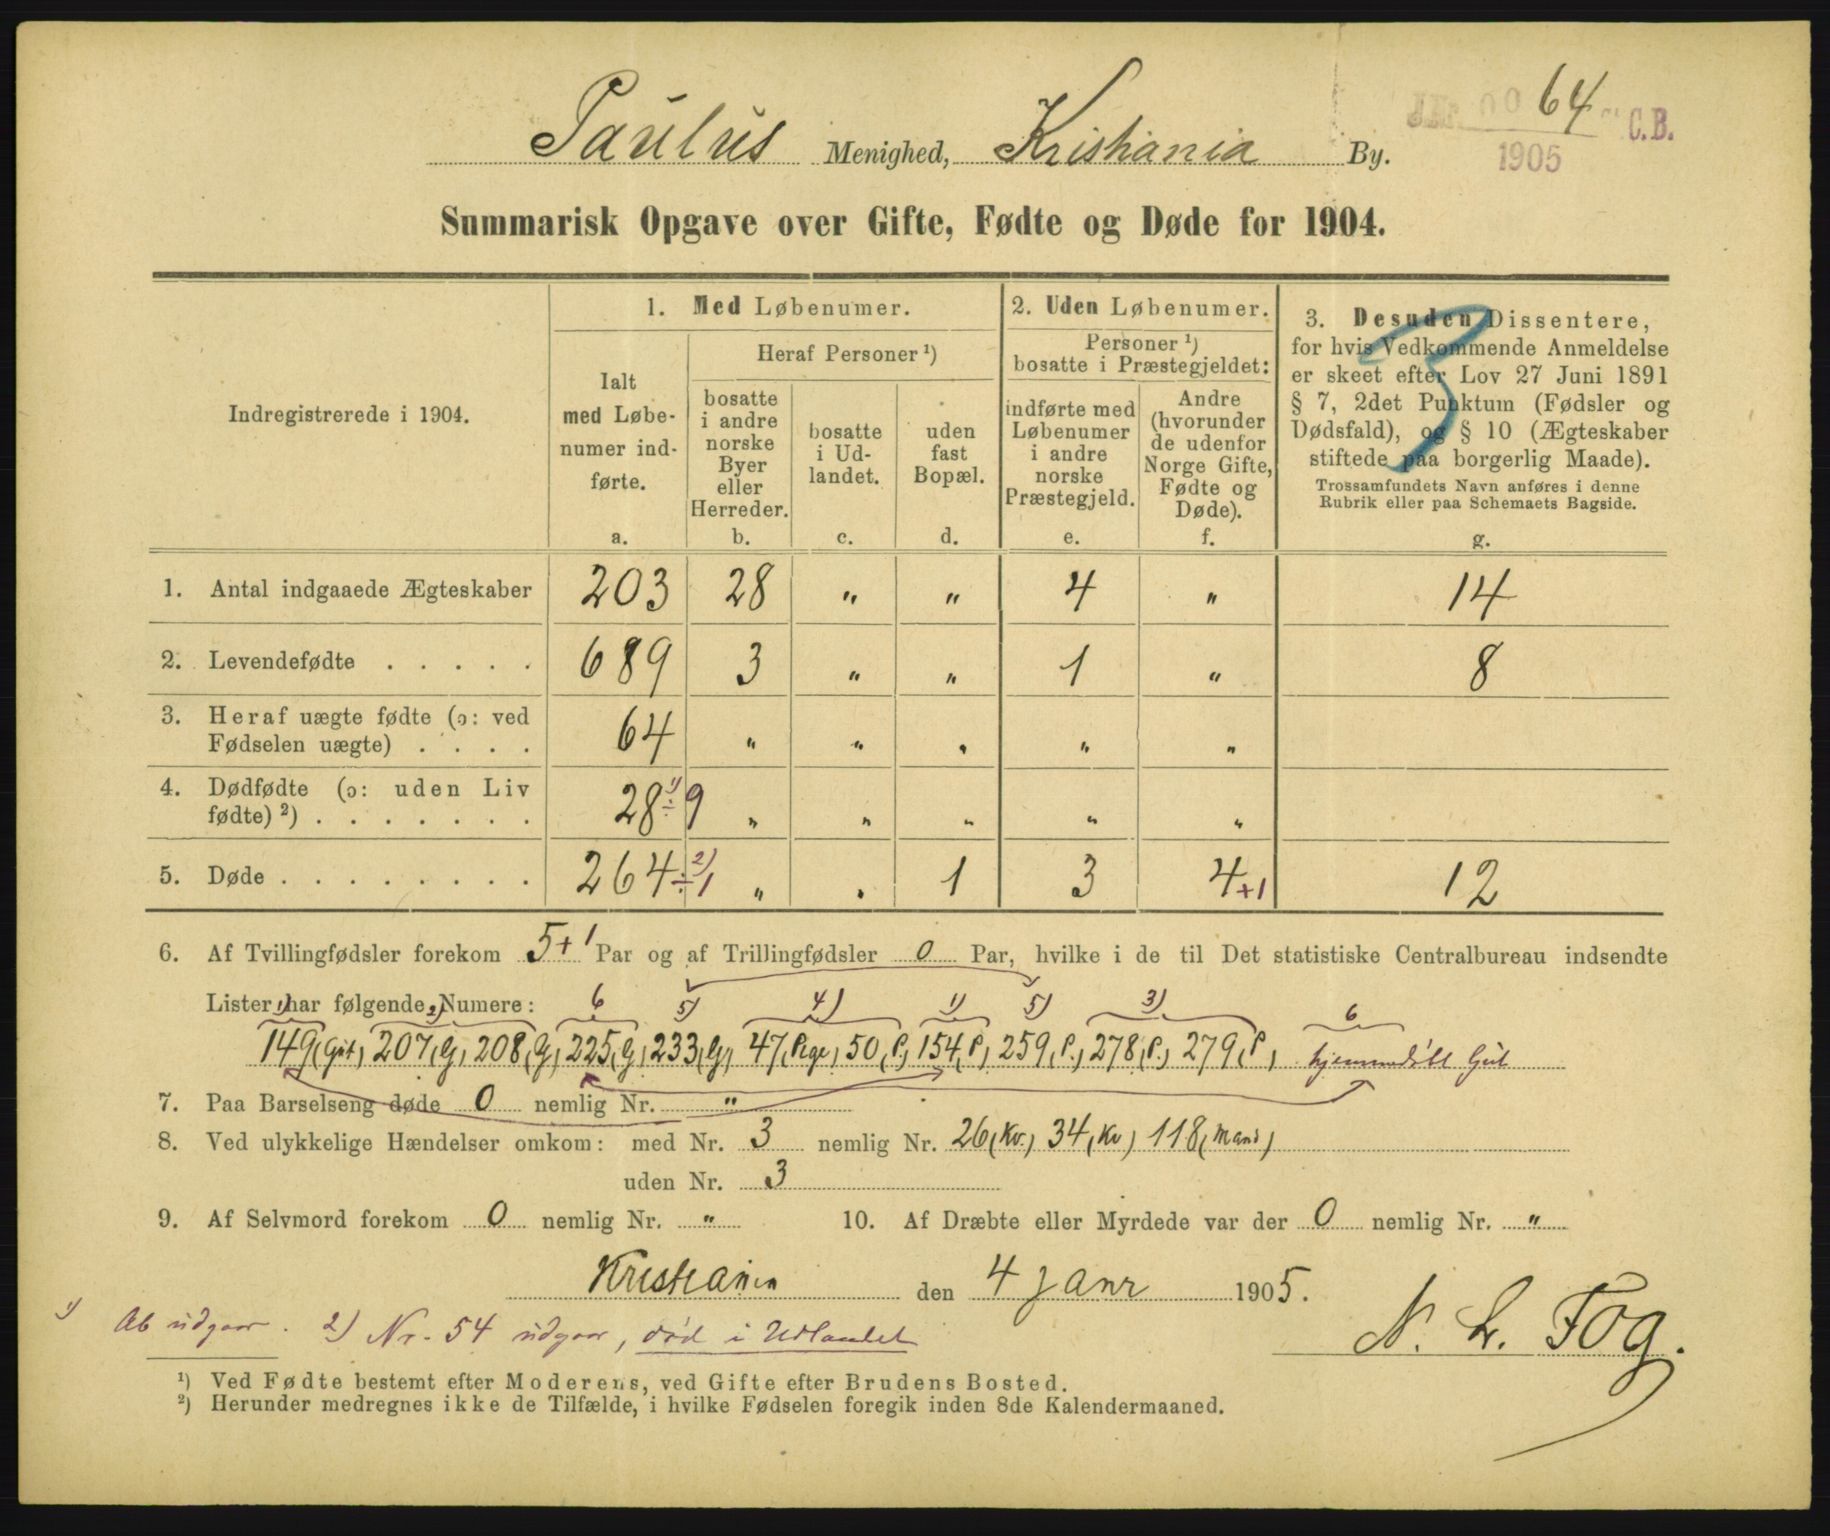 Paulus Menighed, Kristiania By.
J.Nr. 0064 St. C.B.
1905
Summarisk Opgave over Gifte, Fødte og Døde for 1904.
Indregistrerede i 1904.
1. Med Løbenumer.
Ialt med Løbe-numer ind-førte.
a.
Heraf Personer ¹)
bosatte i andre norske Byer eller Herreder.
b.
bosatte i Ud-landet.
c.
uden fast Bopæl.
d.
2. Uden Løbenumer.
Personer ¹)
bosatte i Præstegjeldet:
indførte med Løbenumer i andre norske Præstegjeld.
e.
Andre (hvorunder de udenfor Norge Gifte, Fødte og Døde).
f.
3. Desuden Dissentere,
for hvis Vedkommende Anmeldelse
er skeet efter Lov 27 Juni 1891
§ 7, 2det Punktum (Fødsler og
Dødsfald), og § 10 (Ægteskaber
stiftede paa borgerlig Maade).
Trossamfundets Navn anføres i denne
Rubrik eller paa Schemaets Bagside.
g.
3
1. Antal indgaaede Ægteskaber 203 28 " " 4 " 14
2. Levendefødte . . . . . 689 3 " " 1 " 8
3. Heraf uægte fødte (ɔ: ved
Fødselen uægte) . . . . 64 " " " " "
4. Dødfødte (ɔ: uden Liv
fødte) ²) . . . . . . . 28 ¹) ÷ 9 " " " " "
5. Døde . . . . . . . . . 264 ²) ÷ 1 " " 1 3 4 + 1 12
6. Af Tvillingfødsler forekom 5 + 1 Par og af Trillingfødsler 0 Par, hvilke i de til Det statistiske Centralbureau indsendte
Lister har følgende Numere:
1) 2) 6 5) 4) 1) 5) 3) 6
149 (Gut) 207 (G) 208 (G) 225 (G) 233 (G) 47 (Pige) 50 (P.) 154 (P) 259 (P.) 278 (P.) 279 (P) hjemmedøbt Gut
7. Paa Barselseng døde 0 nemlig Nr. "
8. Ved ulykkelige Hændelser omkom: med Nr. 3 nemlig Nr. 26 (Kv.) 34 (Kv) 118 (Mand)
uden Nr. 3
9. Af Selvmord forekom 0 nemlig Nr. " 10. Af Dræbte eller Myrdede var der 0 nemlig Nr. "
Kristiania den 4 Janr 1905.
N. L. Fog.
1) Ab udgaar. 2) Nr. 54 udgaar, død i Udlandet
¹) Ved Fødte bestemt efter Moderens, ved Gifte efter Brudens Bosted.
²) Herunder medregnes ikke de Tilfælde, i hvilke Fødselen foregik inden 8de Kalendermaaned.